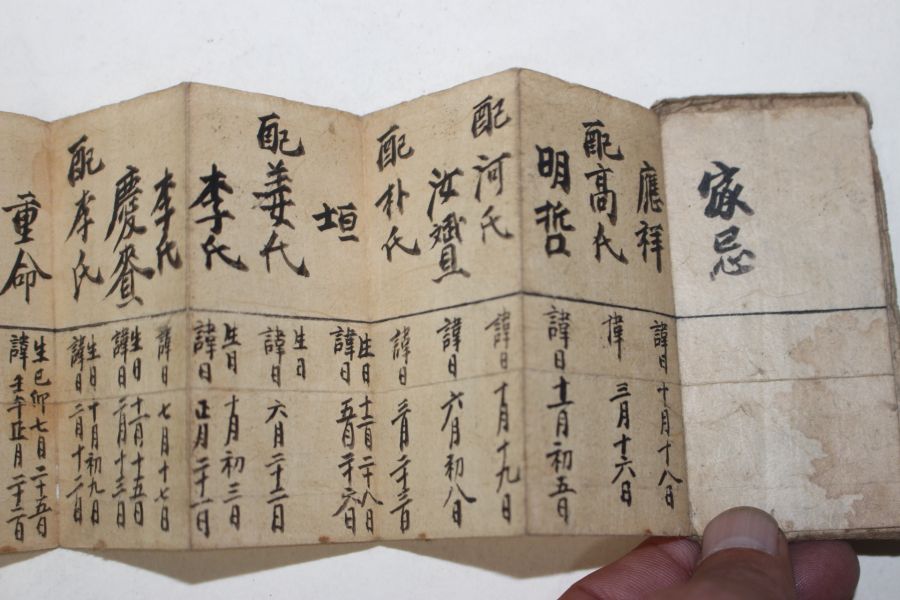 家忌
應祥 諱日 十月十八日
配高氏 諱 三月十六日
明哲 諱日 十二月初五日
配河氏 諱日 十月十九日
汝贇 諱日 六月初八日
配朴氏 諱日 三月二十三日
垣 生日 十二月二十八日 諱日 五月二十六日
配姜氏 生日 諱日 六月二十二日
李氏 生日 十月初三日 諱日 正月二十一日
李氏 諱日 七月十七日
慶賚 生日 十二月十五日 諱日 二月十三日
配李氏 生日 十月初九日 諱日 二月十二日
重命 生 己卯七月二十五日 諱 壬午正月二十二日